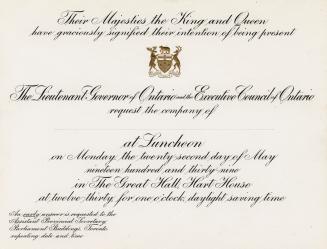 Their Majesties the King and Queen
have graciously signified their intention of being present
The Lieutenant Governor of Ontario and the Executive Council of Ontario
request the company of
at Luncheon
on Monday the twenty second day of May
nineteen hundred and thirty nine
in The Great Hall, Hart House
at twelve thirty for one o'clock, daylight saving time
An early answer is requested to the
Assistant Provincial Secretary
Parliament Buildings, Toronto
repeating date and time